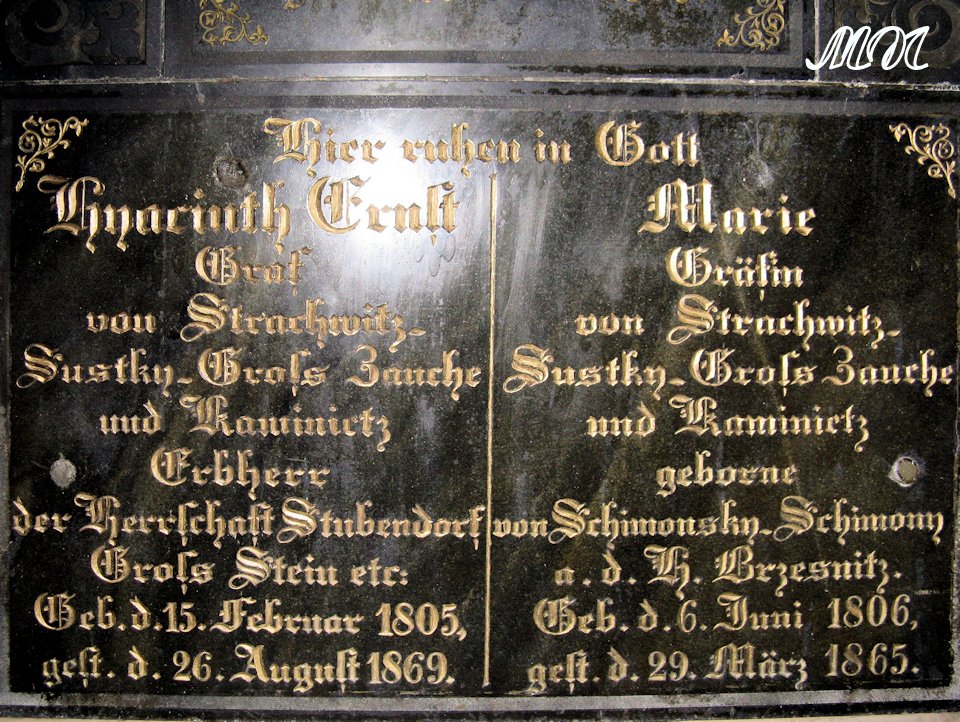 MM
Hier ruhen in Gott
Hyacinth Ernst
Graf
von Strachwitz-
Sustky-Groſs Zauche
und Kaminietz
Erbherr
der Herrſchaft Stubendorf
Groſs Stein etc:
Geb. d. 15. Februar 1805,
geſt. d. 26. Auguſt 1869.
Marie
Gräfin
von Strachwitz-
Sustky-Groſs Zauche
und Kaminietz
geborne
von Schimonsky-Schimony
a. d. H. Brzesnitz.
Geb. d. 6. Juni 1806,
geſt. d. 29. März 1865.